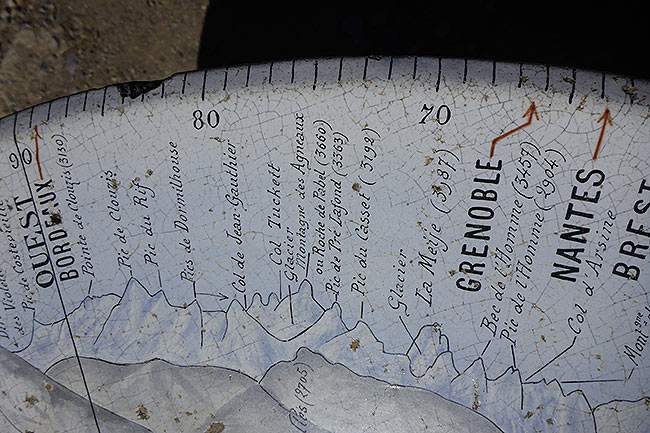 80
70
90
OUEST
BORDEAUX
Pointe de Clouzis (3150)
Pic de Clouzis
Pic du Rif
Pics de Dormilhouse
Col de Jean Gauthier
Col Tuckett
Glacier
Montagne des Agneaux
ou Roche de Pabel (3660)
Pic de Pré Lafond (3363)
Pic du Casset (3192)
Glacier
La Meije (3987)
GRENOBLE
Bec de l'Homme (3457)
Pic de l'Homme (2904)
NANTES
Col d'Arsine
BREST
(2705)